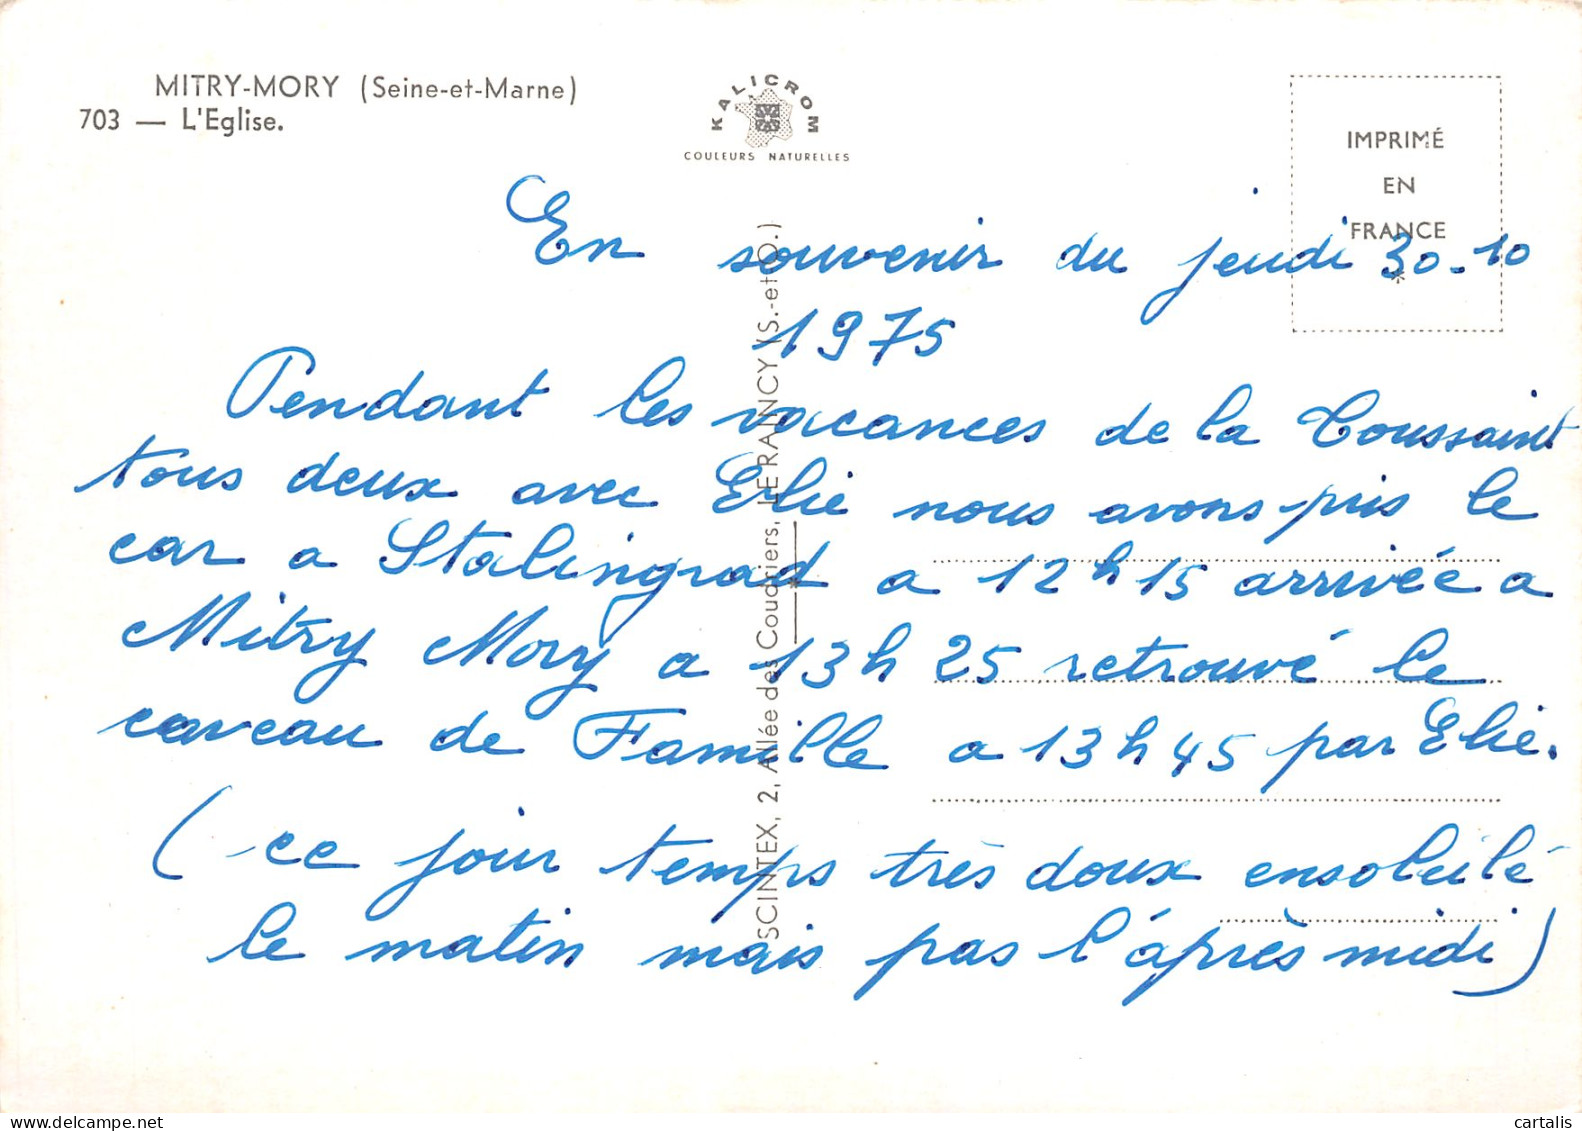 MITRY-MORY (Seine-et-Marne)
703 — L'Eglise.
KALICROM
COULEURS NATURELLES
IMPRIMÉ
EN
FRANCE
SCINTEX, 2, Allée des Coudriers, LE RAINCY (S.-et-O.)
En souvenir du jeudi 30-10
1975
Pendant les vacances de la Toussaint
tous deux avec Elie nous avons pris le
car a Stalingrad a 12h15 arrivée a
Mitry Mory a 13h25 retrouvé le
caveau de Famille a 13h45 par Elie.
(ce jour temps très doux ensoleilé
le matin mais pas l'après midi)
cartalis